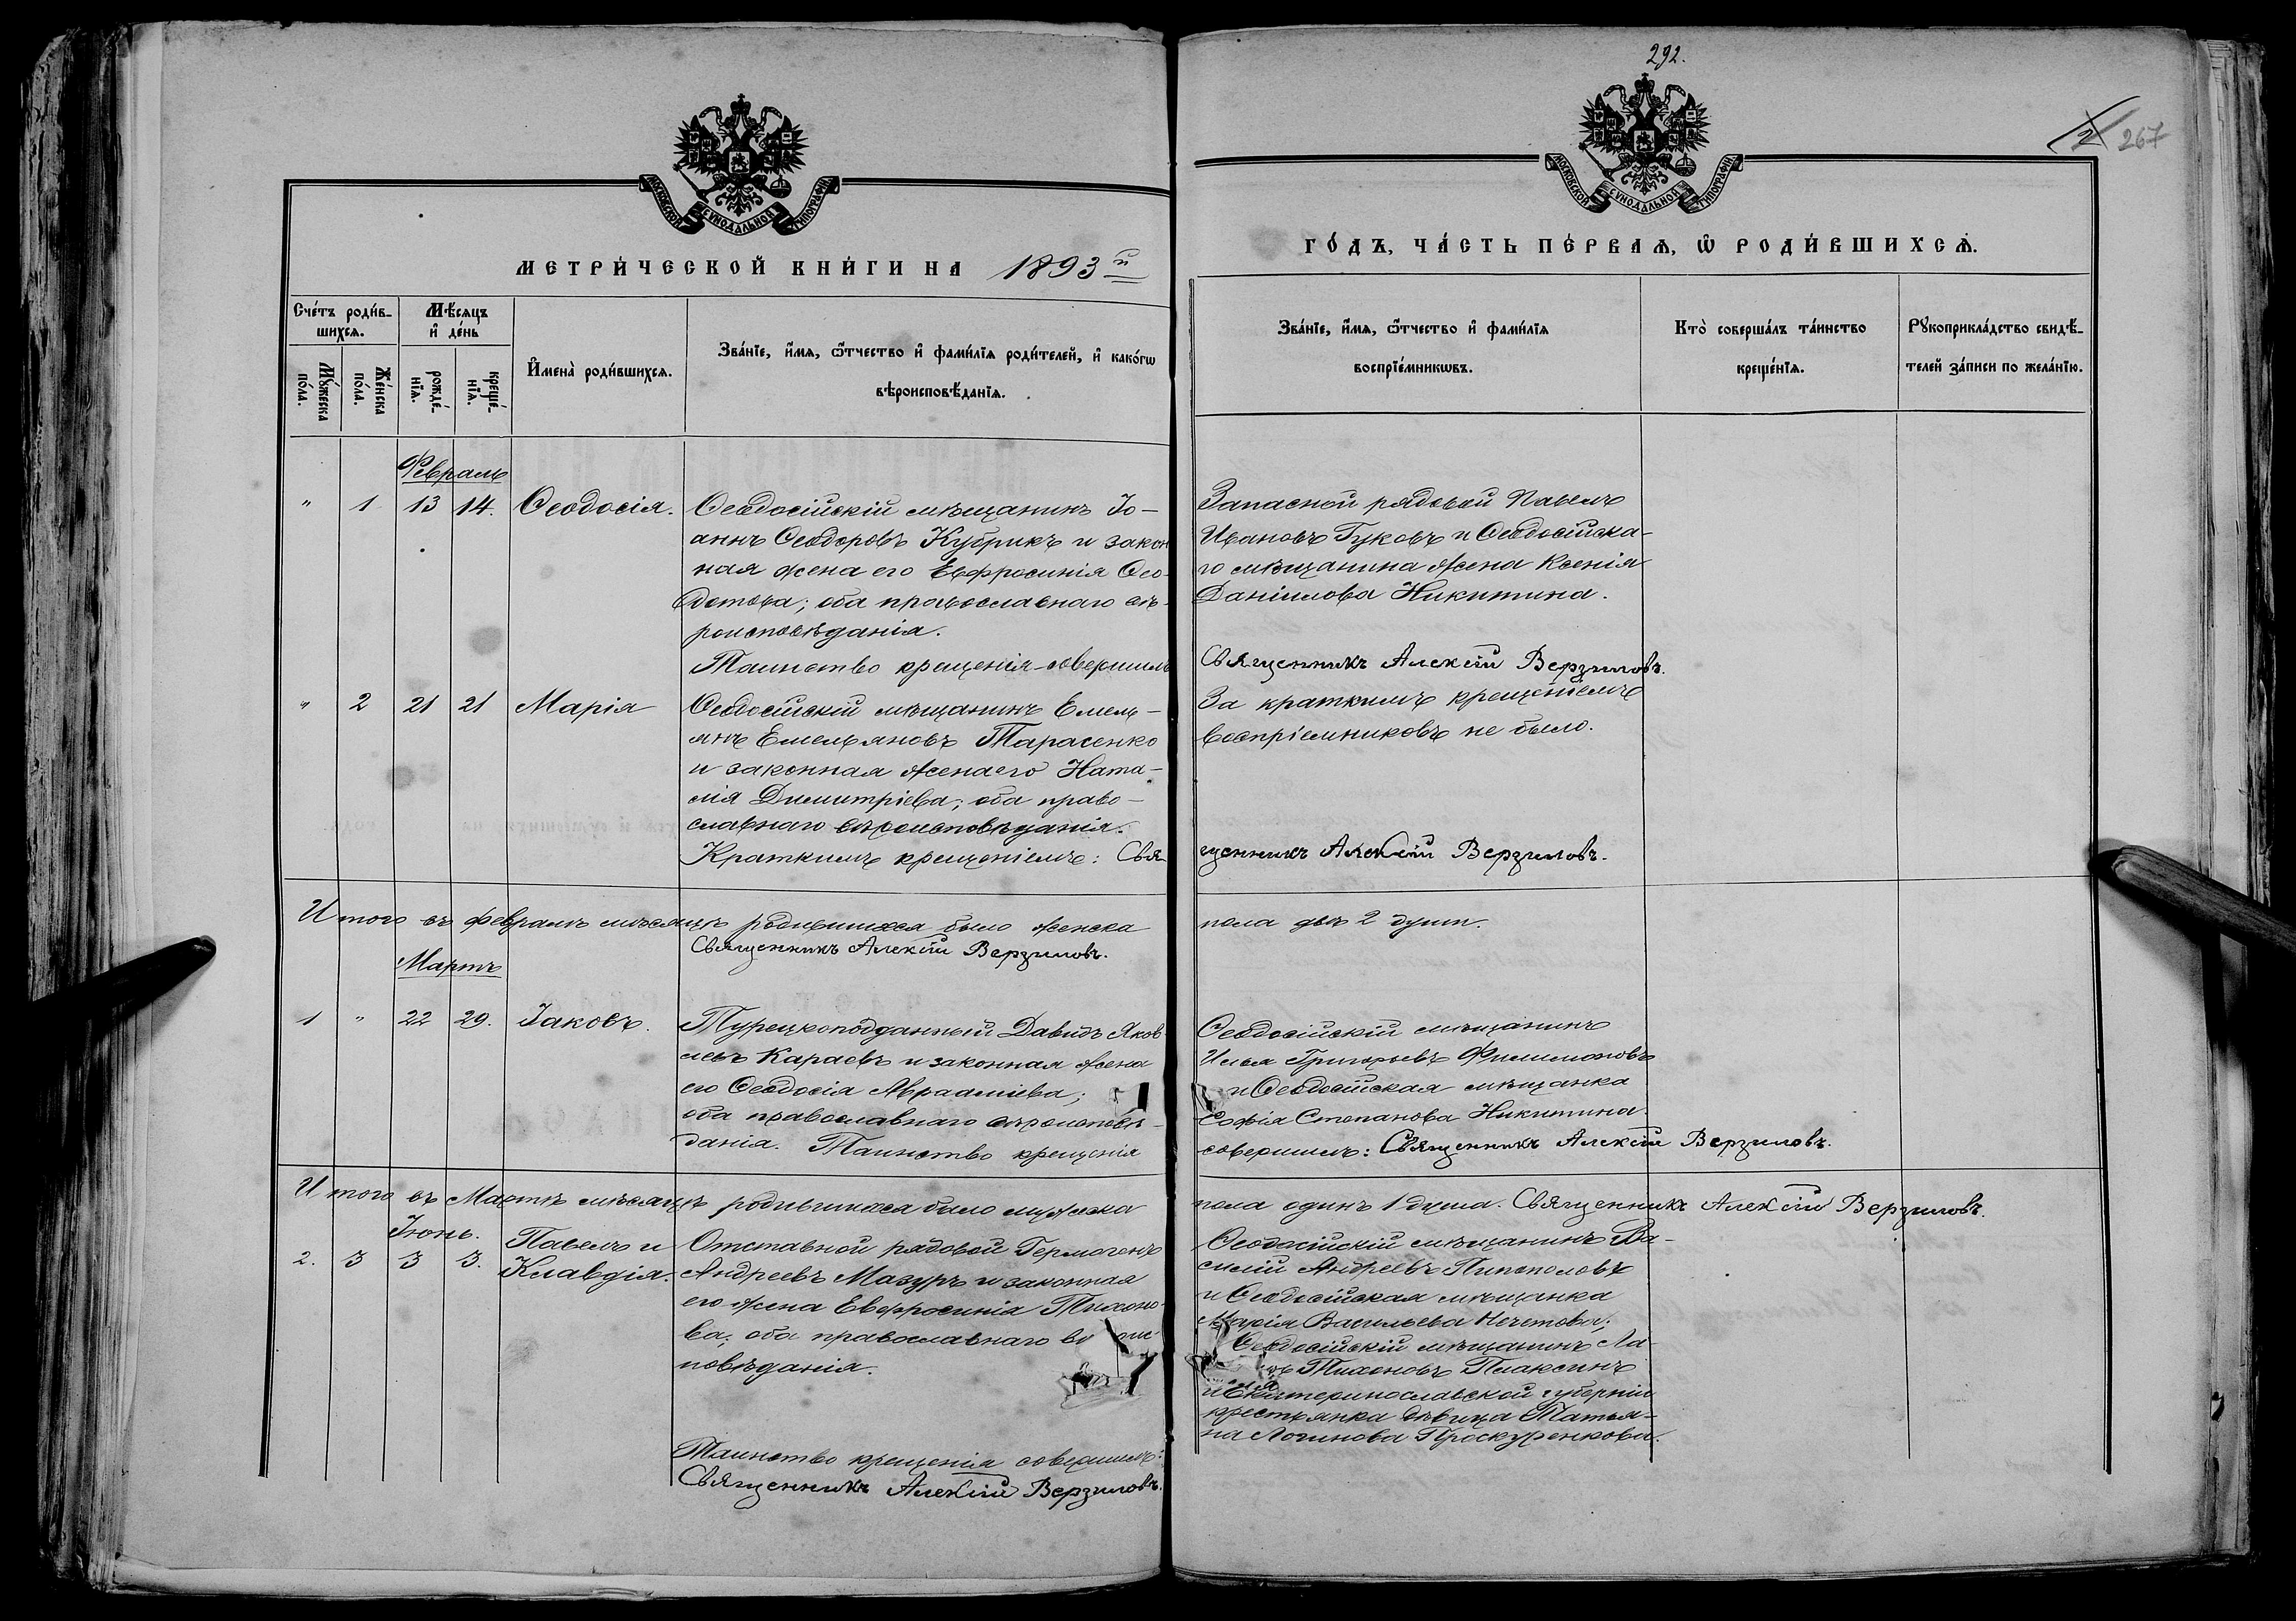 292.
2 267
МОСКОВСКОЙ СѴНОДАЛЬНОЙ ТИПОГРАФІИ
МОСКОВСКОЙ СѴНОДАЛЬНОЙ ТИПОГРАФІИ
МЕТРИ́ЧЕСКОЙ КНИ́ГИ НА 1893й
ГО́ДЪ, ЧА́СТЬ ПЕ́РВАѦ, Ѡ РОДИ́ВШИХСѦ.
Сче́тъ роди́в-
шихсѧ.
Мѣ́сѧцъ
и҆ де́нь
Мꙋ́жеска
по́ла.
Же́нска
по́ла.
рожде́-
нїѧ.
креще́-
нїѧ.
И҆мена̀ роди́вшихсѧ.
Зва́нїе, и҆́мѧ, ѻ҆́тчество и҆ фами́лїѧ роди́телей, и҆ како́гѡ
вѣроисповѣ́данїѧ.
Зва́нїе, и҆́мѧ, ѻ҆́тчество и҆ фами́лїѧ
воспрїе́мникѡвъ.
Кто̀ соверша́лъ та́инство
креще́нїѧ.
Рꙋкоприкла́дство свидѣ́-
телей за́писи по жела́нїю.
Февраль
" 1 13 14. Ѳеодосія.
Ѳеодосійскій мѣщанинъ Іо-
аннъ Ѳеодоровъ Кубрикъ и закон
ная жена его Евфросинія Ѳео-
дотова; оба православнаго вѣ-
роисповѣданія.
Таинство крещенія совершилъ
Запасной рядовой Павелъ
Ивановъ Гуковъ и Ѳеодосійска-
го мѣщанина жена Ксенія
Даніилова Никитина.
Священникъ Алексій Верзиловъ.
" 2 21 21 Марія
Ѳеодосійскій мѣщанинъ Емель-
янъ Емельяновъ Тарасенко
и законная жена его Ната-
лія Димитріева; оба право-
славнаго вѣроисповѣданія.
Краткимъ крещеніемъ: Свя-
За краткимъ крещеніемъ
воспріемниковъ не было.
щенникъ Алексій Верзиловъ.
Итого въ февралѣ мѣсяцѣ родившихся было женска
пола двѣ 2 душ.
Священникъ Алексій Верзиловъ.
Мартъ
1 " 22 29. Іаковъ.
Турецкоподданный Давидъ Яков-
левъ Караевъ и законная жена
его Ѳеодосія Авраамiева;
оба православнаго вѣроисповѣ-
данія. Таинство крещенія
Ѳеодосійскій мѣщанинъ
Илья Григорьевъ Филимоновъ
и Ѳеодосійская мѣщанка
Софія Степанова Никитина.
совершилъ: Священникъ Алексій Верзиловъ.
Итого въ Мартѣ мѣсяцѣ родившихся было мужеска
пола одинъ 1 душа. Священникъ Алексій Верзиловъ.
Іюнь.
2. 3 3 3. Павелъ и
Клавдія.
Отставной рядовой Гермогенъ
Андреевъ Мазуръ и законная
его жена Евфросинія Тихоно-
ва; оба православнаго
повѣданія.
Таинство крещенія совершилъ:
Священникъ Алексій Верзиловъ.
Ѳеодосійскій мѣщанинъ Ва-
силій Андреевъ
и Ѳеодосійская мѣщанка
Марія Васильева
Ѳеодосійскій мѣщанинъ
Тихоновъ Плаксинъ
и Екатеринославской губерніи
крестьянка дѣвица Татья-
на Логинова Проскуренкова.